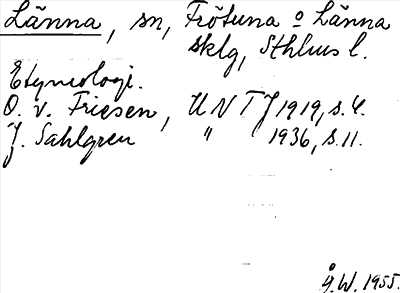 Länna, sn, Frötuna o Länna
sklg, Sthlms l.
Etymologi.
O. v. Friesen, UNTJ 1919, s. 4.
J. Sahlgren " 1936, s. 11.
Å.W. 1955.